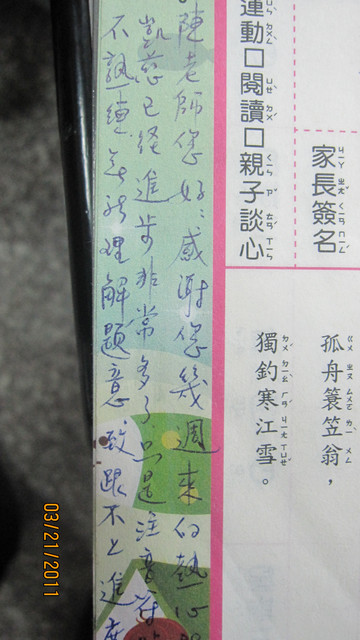 家長簽名
運動□閱讀□親子談心
孤舟簑笠翁，
獨釣寒江雪。
陳老師您好：感謝您幾週來的熱心
凱慈已經進步非常多了只是注音符
不熟練無法理解題意致跟不上進度
03/21/2011